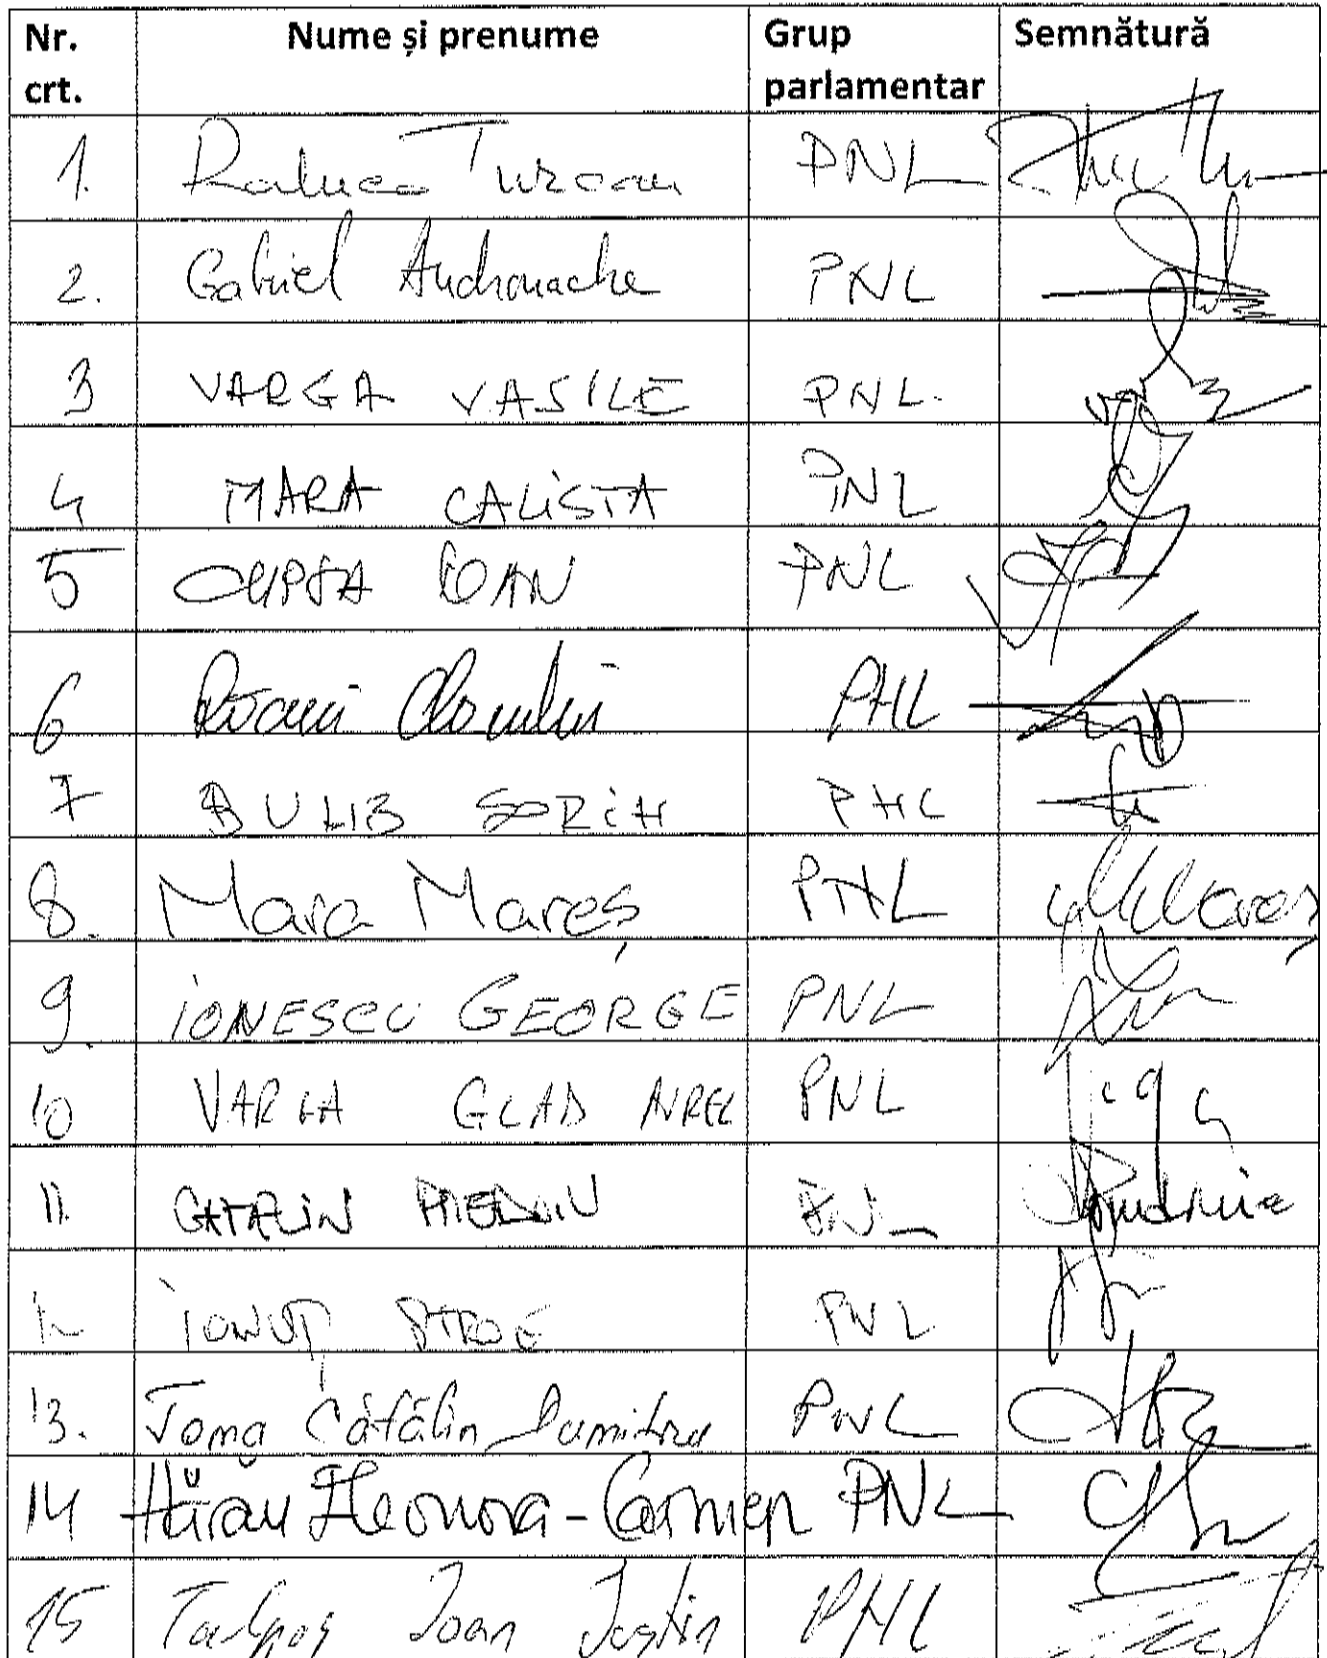 Nr. crt. Nume și prenume Grup parlamentar Semnătură
1. Raluca Turcan PNL
2. Gabriel Andronache PNL
3 VARGA VASILE PNL.
4 MARA CALISTA PNL
5 CUPȘA IOAN PNL
6 PNL
7 BUMB SORIN PNL
8. Mara Mareș PNL
9. IONESCU GEORGE PNL
10 VARGA GLAD AUREL PNL
11. CATALIN PREDOIU PNL
12 IONUȚ STROE PNL
13. Toma Cătălin Dumitru PNL
14 Hărău Eleonora-Carmen PNL
15 Talpoș Ioan Iustin PNL